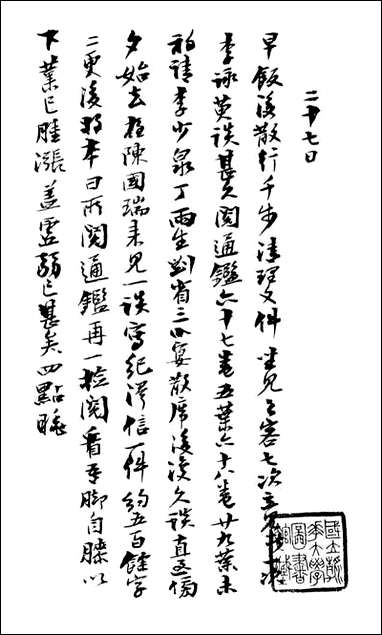 二十七日
早飯後散行千步清理文件坐見之客七次立見次
李詠談甚久閱通鑑六十七卷五葉六十八卷廿九葉未
初請李少泉丁雨生劉省三宴散席後復久談直至傍
夕始去夜陳國瑞來見一談寫紀澤信一件約五百餘字
二更後將本日所閱通鑑再一檢閱看畢脚自膝以
下業已腫漲蓋虛弱已甚矣四點睡
國立
大學
圖書
館藏